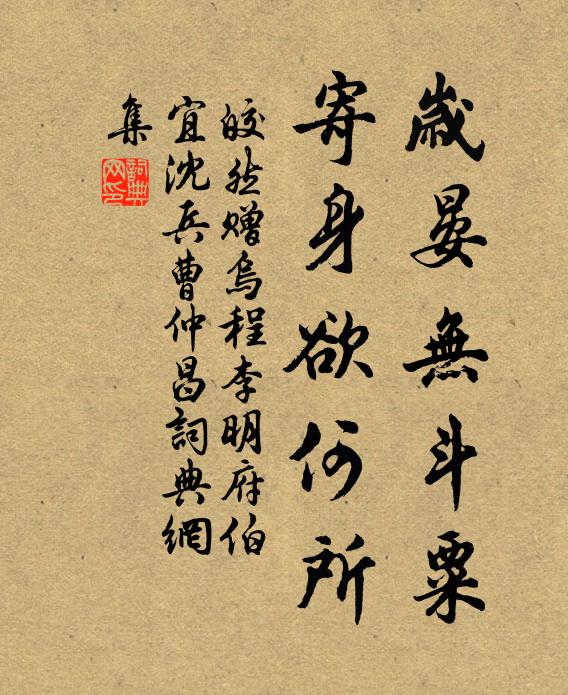 歲晏無斗粟
寄身欲何所
皎然贈烏程李明府伯
宜沈兵曹仲昌詞典網
集
詞典网印